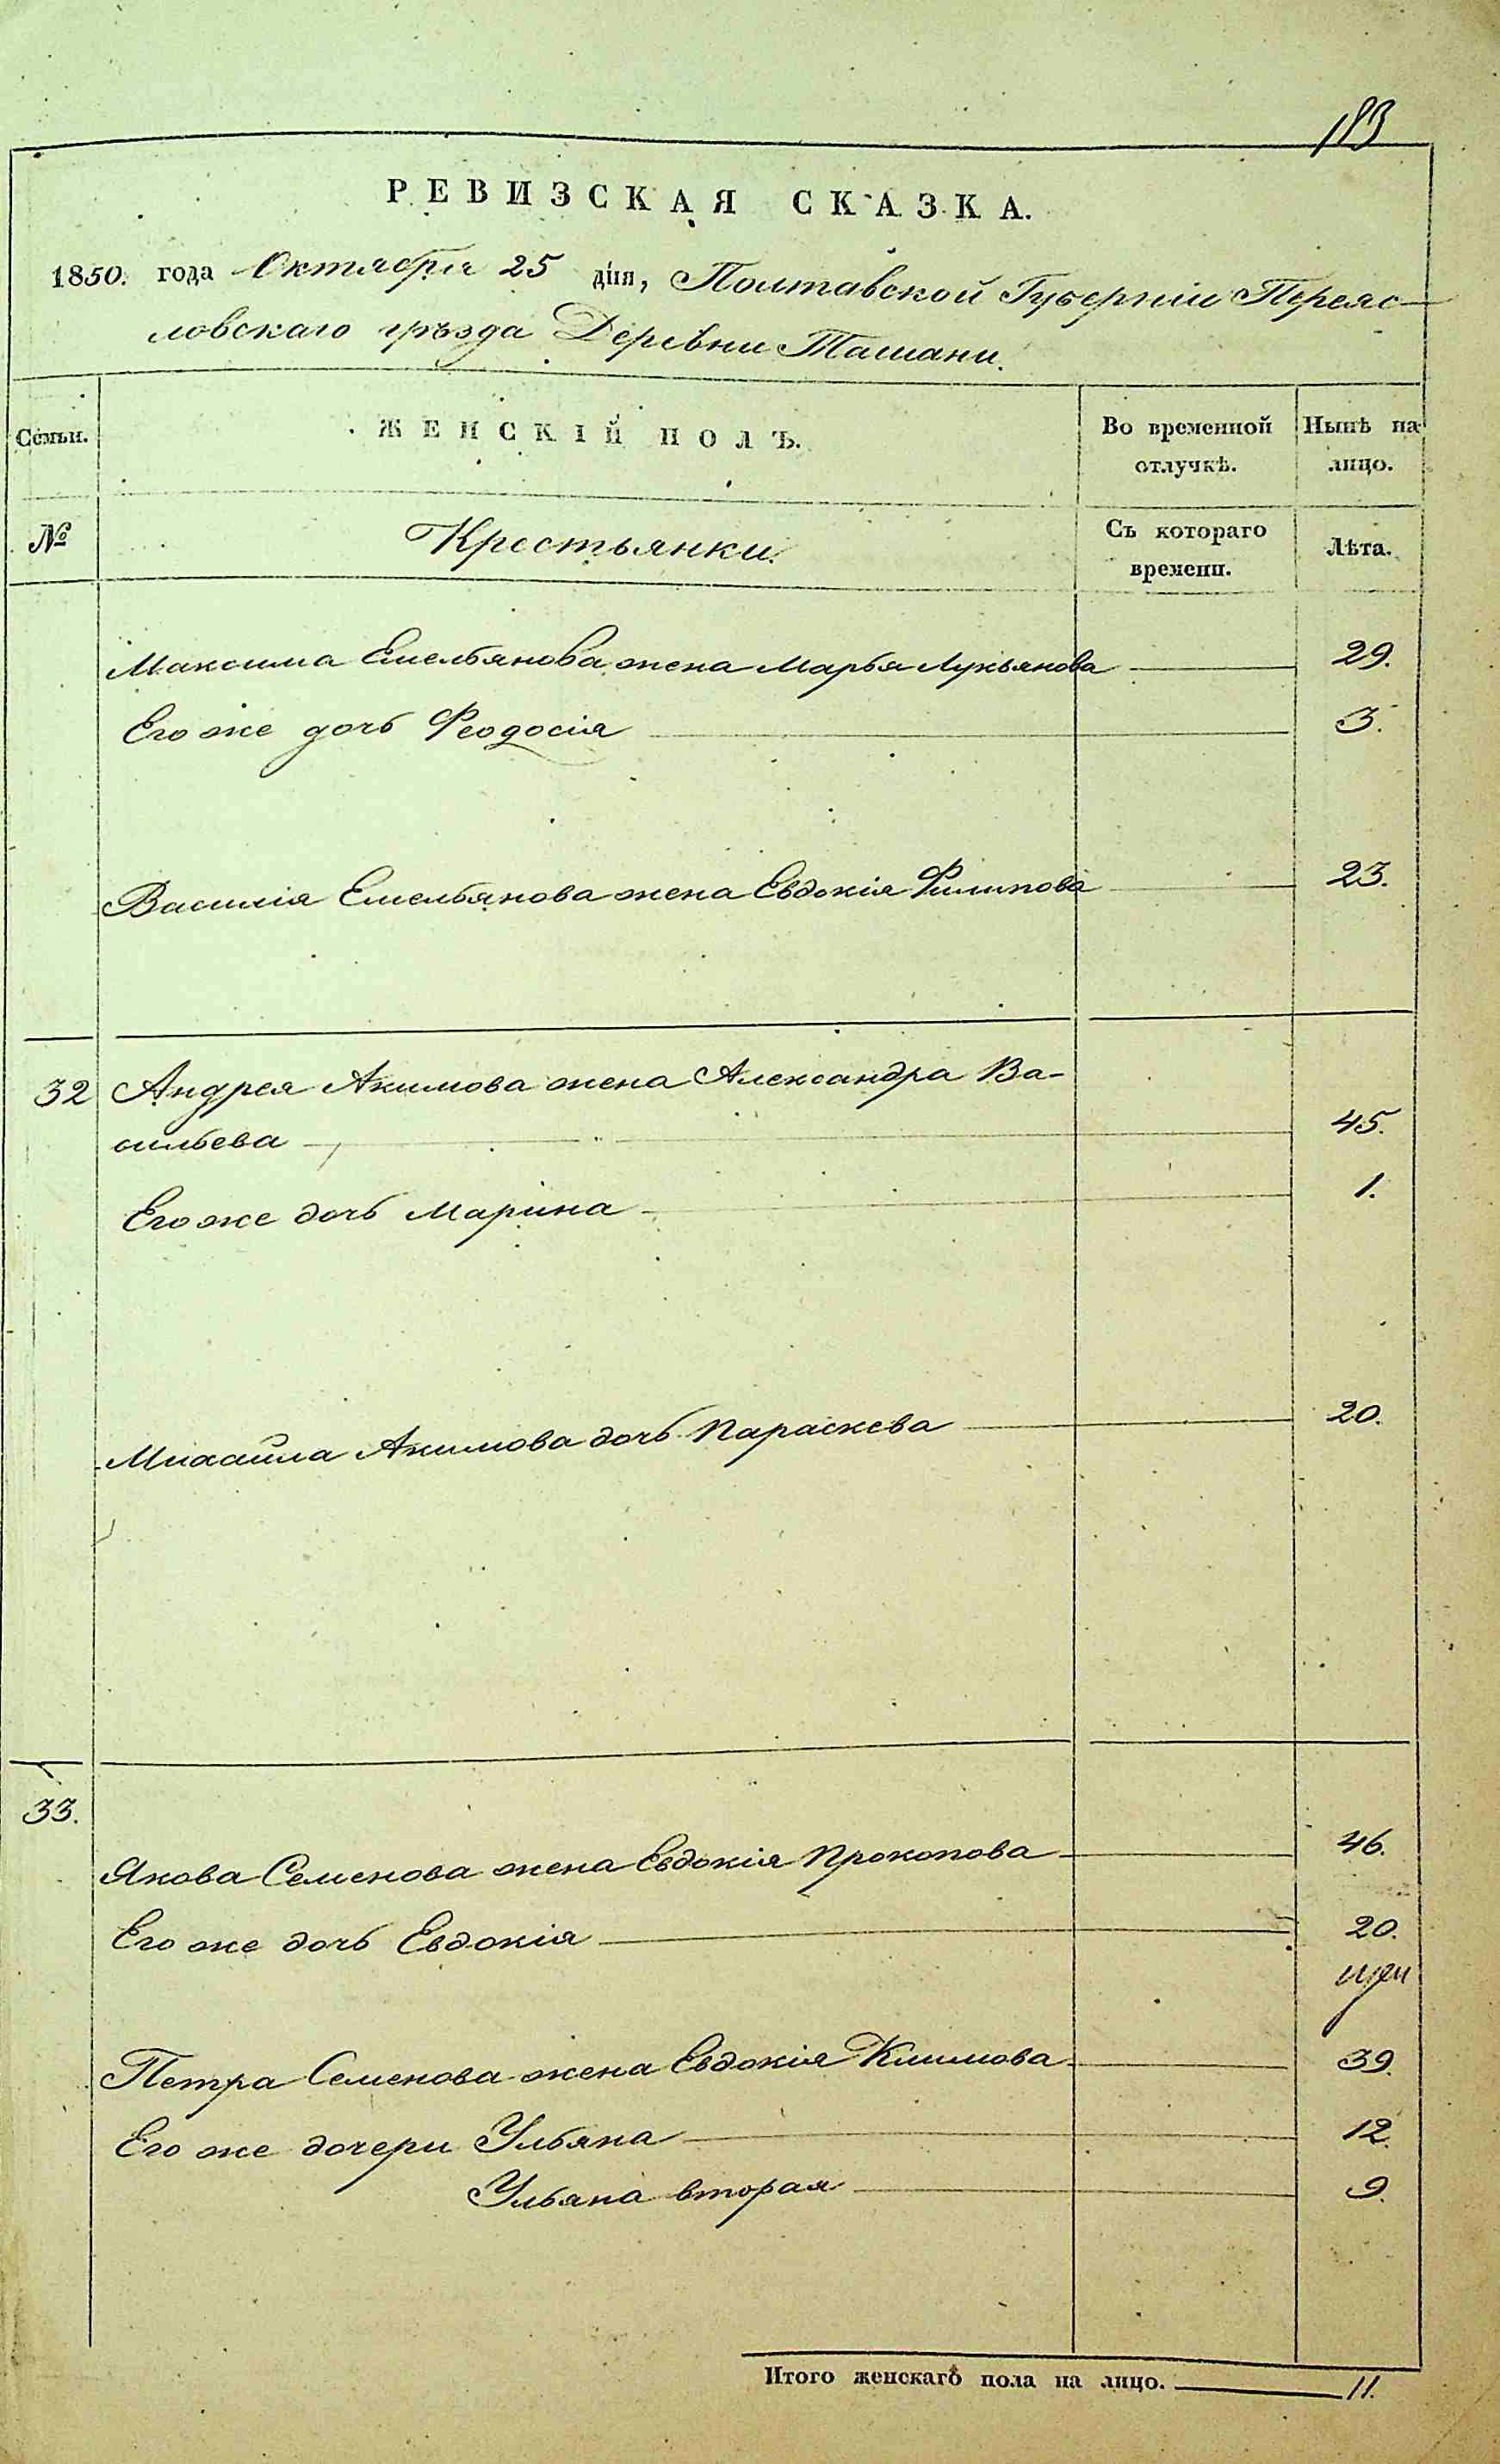 183
РЕВИЗСКАЯ СКАЗКА.
1850. года Октября 25 дня, Полтавской Губерніи Переяс-
ловскаго уѣзда Деревни Ташани.
Семьи.
ЖЕНСКІЙ ПОЛЪ.
Во временной
отлучкѣ.
Нынѣ на
лицо.
№
Крестьянки.
Съ котораго
времени.
Лѣта.
Максима Емельянова жена Марья Лукьянова 29.
Его же дочь Феодосія 3.
Василія Емельянова жена Евдокія Филипова 23.
32 Андрея Акимова жена Александра Ва-
сильева 45.
Его же дочь Марина 1.
Михаила Акимова дочь Параскева 20.
33.
Якова Семенова жена Евдокія Прокопова 46.
Его же дочь Евдокія 20.
Петра Семенова жена Евдокія Климова 39.
Его же дочери Ульяна 12.
Ульяна вторая 9.
Итого женскаго пола на лицо. 11.